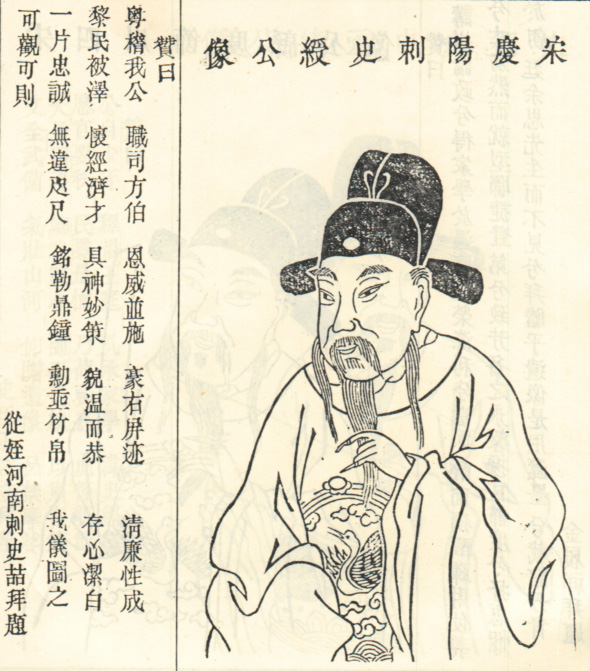 宋慶陽刺史綬公像
贊曰
粤稽我公 職司方伯 恩威並施 豪右屏迹 清廉性成
黎民被澤 懷經濟才 具神妙策 貌溫而恭 存心潔白
一片忠誠 無違咫尺 銘勒鼎鐘 勳垂竹帛 我儀圖之
可觀可則
從姪河南刺史喆拜題